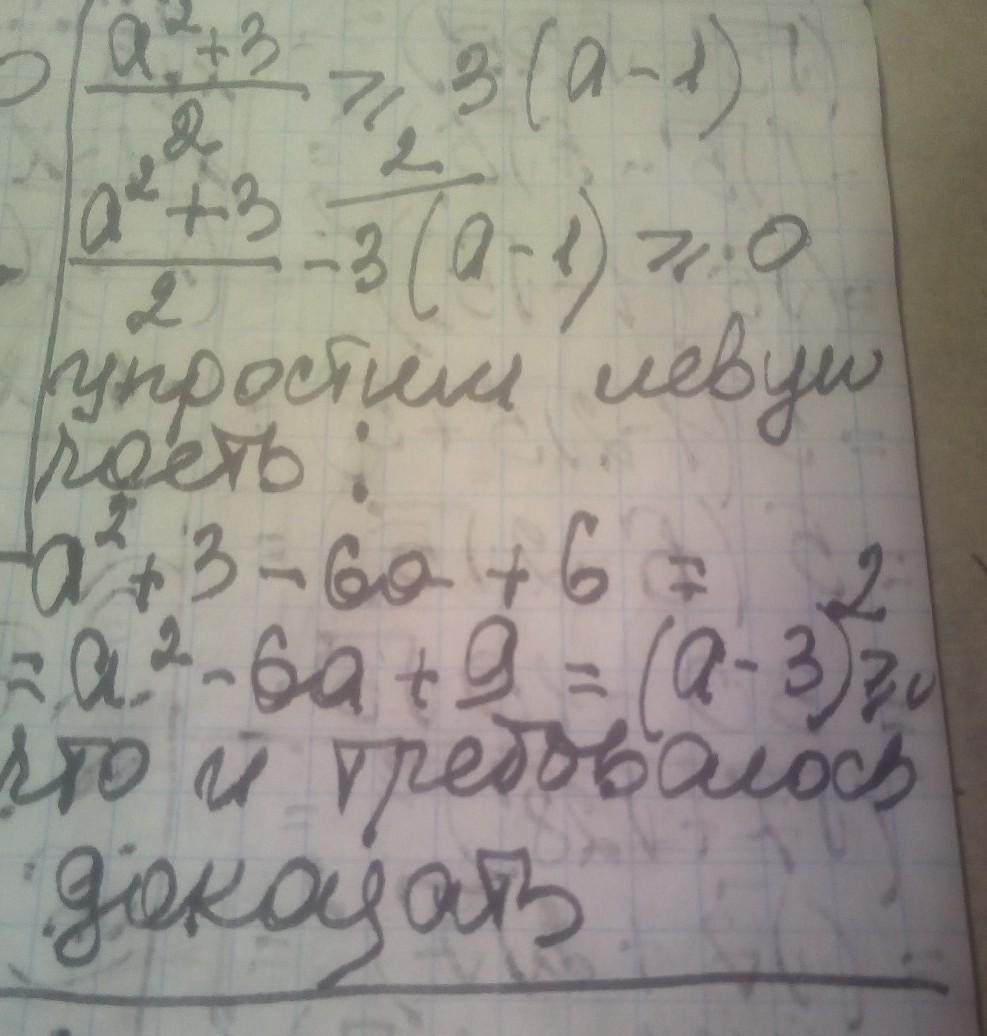 a² + 3 / 2 ≥ 3 (a - 1)
a² + 3 / 2 - 3 (a - 1) ≥ 0
2
упростим левую
часть :
a² + 3 - 6a + 6 =
= a² - 6a + 9 = (a - 3)² ≥ 0
что и требовалось
доказать